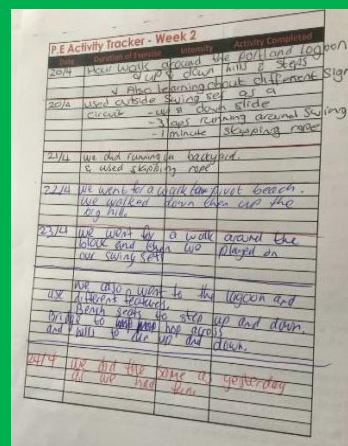 P.E Activity Tracker - Week 2
Date Duration of Exercise Intensity Activity Completed
20/4 Hour walk around the port and lagoon
& up & down hills & steps
& Also learning about different Signs
20/4 used outside Swing set as a
circuit - up & down slide
- 3 laps running around Swing
- 1 minute skipping rope
21/4 we did running in backyard.
& used skipping rope
22/4 we went for a walk to pivot beach.
we walked down then up the
big hill.
23/4 we went for a walk around the
block and then we played on
our swing set
we also went to the lagoon and
use different features.
Bench seats to step up and down,
Bridge to hop across
and hills to run up and down.
24/4 we did the same as yesterday
as we had fun